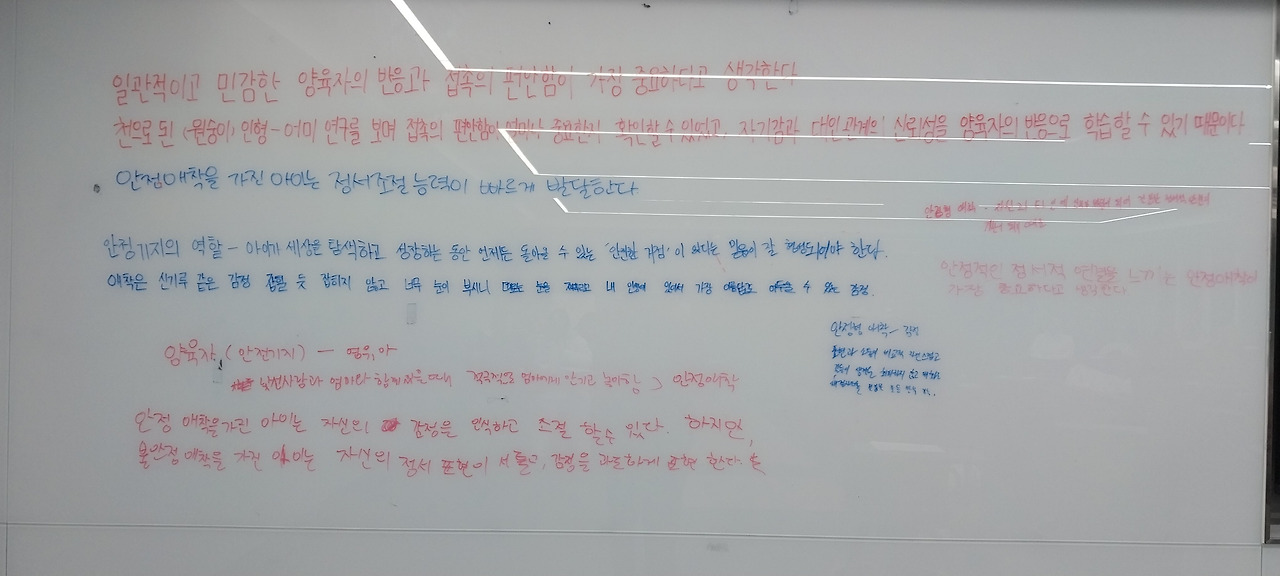 일관적이고 민감한 양육자의 반응과 접촉의 편안함이 가장 중요하다고 생각한다
천으로 된 (원숭이) 인형-어미 연구를 보며 접촉의 편안함이 얼마나 중요한지 확인할 수 있었고, 자기감과 대인관계의 신뢰성을 양육자의 반응으로 학습할 수 있기 때문이다
안정애착을 가진 아이는 정서조절 능력이 빠르게 발달한다
안정기지의 역할 - 아이가 세상은 탐색하고 성장하는 동안 언제든 돌아올 수 있는 '안전한 거점'이 있다는 믿음이 잘 형성되어야 한다.
애착은 신기루 같은 감정 잡힐 듯 잡히지 않고 너무 눈이 부시니 내 인생에 있어서 가장 아름답고 수 있는 감정.
안정형 애착
안정적인 정서적 연결을 느끼는 안정애착이
가장 중요하다고 생각한다
안정형 애착 - 감정
표현과
양육자 (안전기지) - 영유아
낯선사람과 엄마와 함께 있을때 적극적으로 엄마에게 안기고 놀아함 → 안정애착
안정 애착을 가진 아이는 자신의 감정을 인식하고 조절 할 수 있다. 하지만,
불안정애착을 가진 아이는 자신의 정서 표현이 서툴고, 감정을 과도하게 표현 한다.